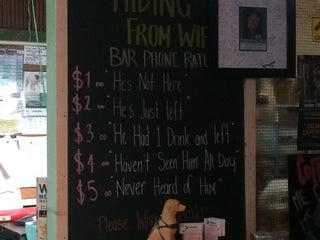 HIDING
FROM WIFE
BAR PHONE RATE
$1 "He's Not Here"
$2 "He's Just left"
$3.00 "He Had 1 Drink and left"
$4 "Haven't Seen Him All Day"
$5 "Never Heard of Him"
Please